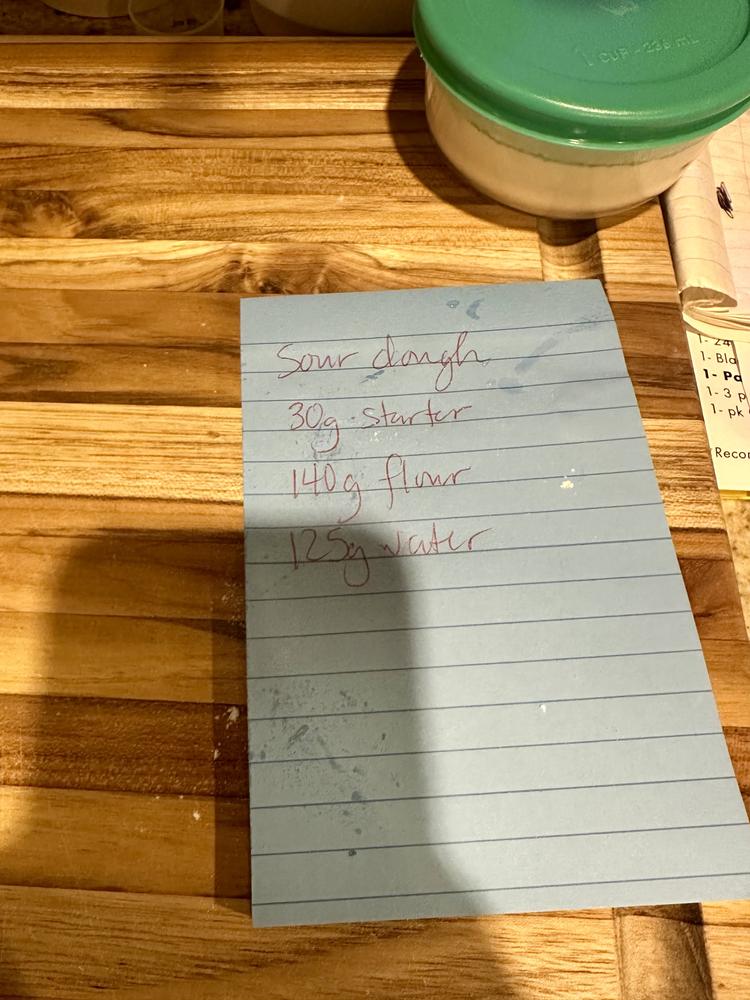 1 CUP - 236 mL
Sour dough
30g starter
140g flour
125g water
1- 24
1- Bla
1- Pa
1- 3 p
1- pk
Recor